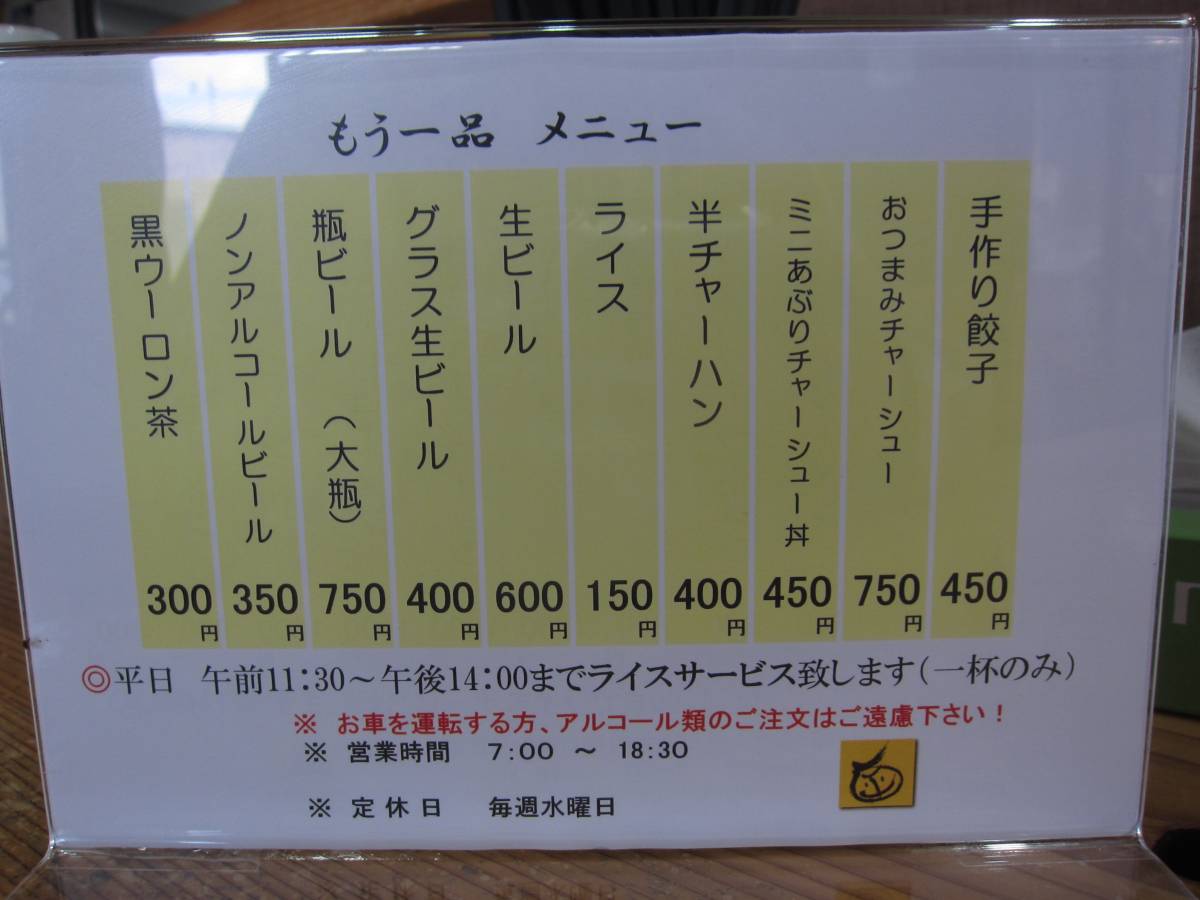 もう一品 メニュー
手作り餃子 450円
おつまみチャーシュー 750円
ミニあぶりチャーシュー丼 450円
半チャーハン 400円
ライス 150円
生ビール 600円
グラス生ビール 400円
瓶ビール （大瓶） 750円
ノンアルコールビール 350円
黒ウーロン茶 300円
◎平日 午前11:30～午後14:00までライスサービス致します（一杯のみ）
※ お車を運転する方、アルコール類のご注文はご遠慮下さい！
※ 営業時間 7:00 ～ 18:30
※ 定休日 毎週水曜日